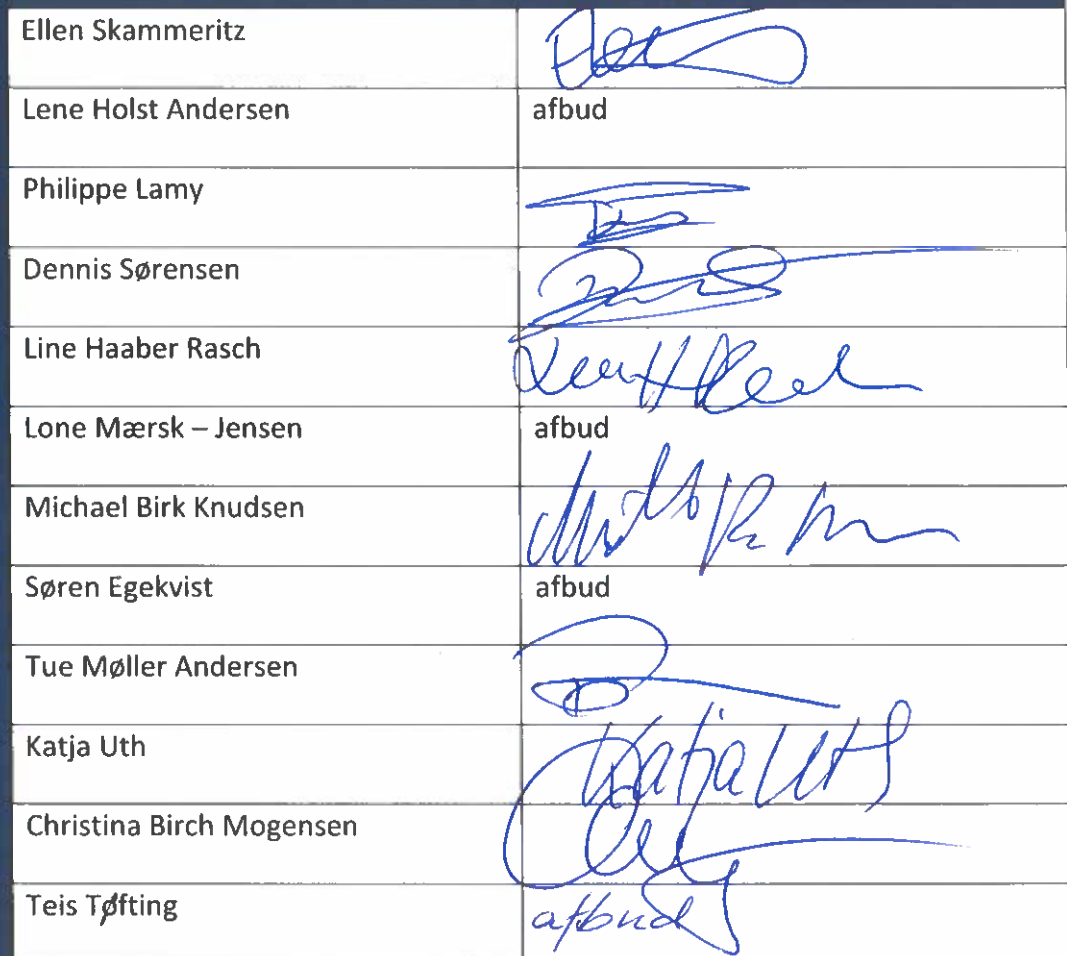 Ellen Skammeritz
Lene Holst Andersen afbud
Philippe Lamy
Dennis Sørensen
Line Haaber Rasch
Lone Mærsk – Jensen afbud
Michael Birk Knudsen
Søren Egekvist afbud
Tue Møller Andersen
Katja Uth Katja Uth
Christina Birch Mogensen
Teis Tøfting afbud